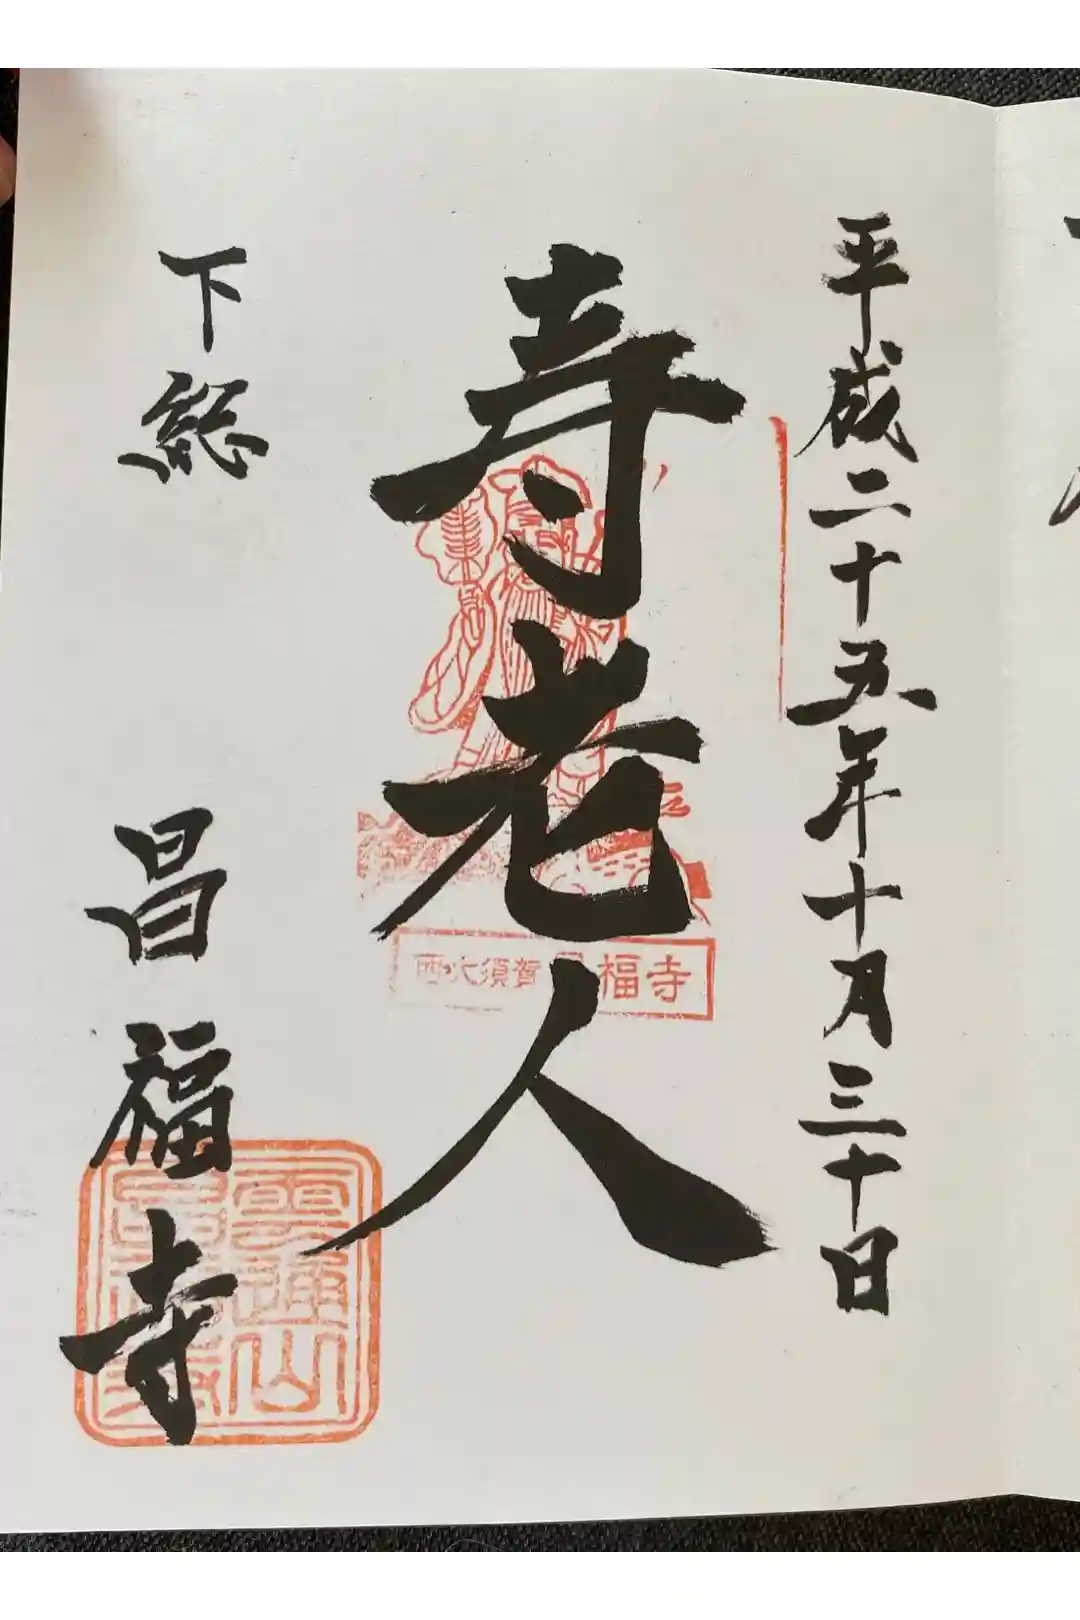 平成二十五年十月三十日
寿老人
西大須賀 福寺
下総
昌福寺